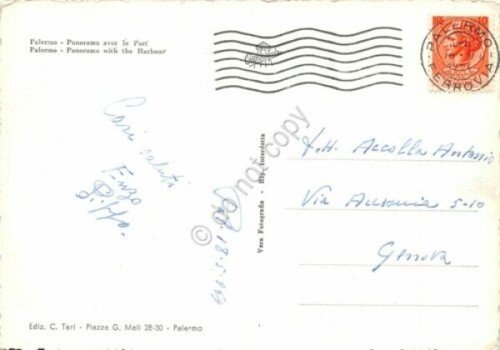 Palermo - Panorama avec le Port
Palermo - Panorama with the Harbour
PALERMO
FERROVIA
10
Cari saluti
Enzo
Pippo.
Vera Fotografia - Rip. interdetta
Do not copy
Accolla Antonio
Via Ausonia 5-10
Genova
Ediz. C. Teri - Piazza G. Meli 28-30 - Palermo